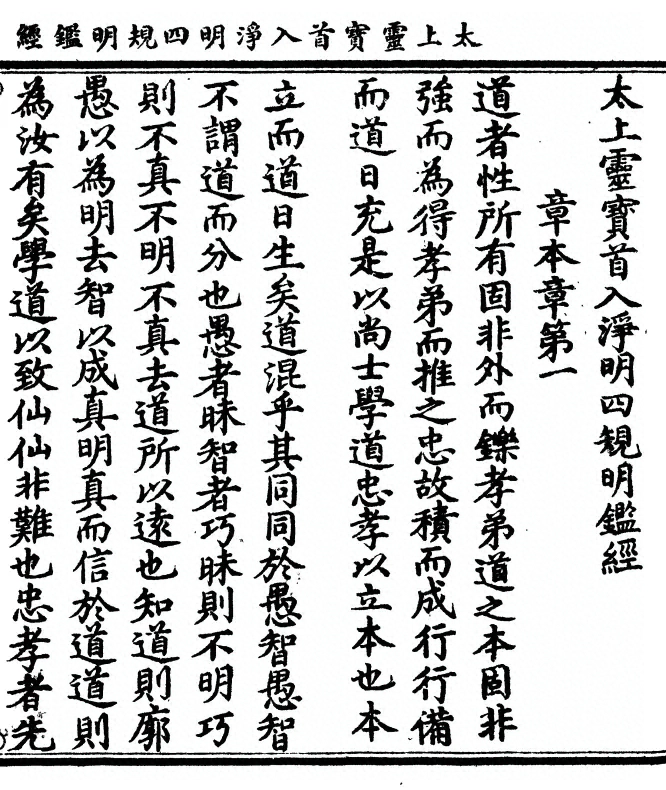 太上靈寶首入淨明四規明鑑經
太上靈寶首入淨明四規明鑑經
章本章第一
道者性所有固非外而鑠孝弟道之本固非
強而為得孝弟而推之忠故積而成行行備
而道日充是以尚士學道忠孝以立本也本
立而道日生矣道混乎其同同於愚智愚智
不謂道而分也愚者昧智者巧昧則不明巧
則不真不明不真去道所以遠也知道則廓
愚以為明去智以成真明真而信於道道則
為汝有矣學道以致仙仙非難也忠孝者先